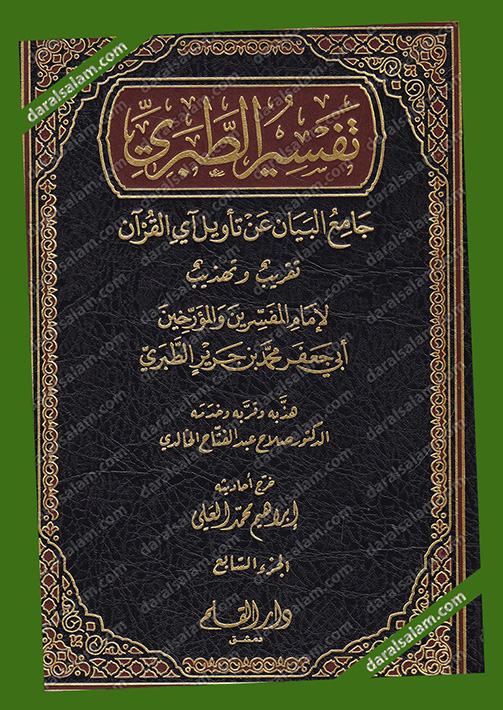 تَفْسِيرُ الطَّبَرِيِّ
جَامِعُ البَيَانِ عَنْ تَأْوِيلِ آيِ القُرْآنِ
تقريبٌ وتهذيبٌ
لإمَامِ المُفَسِّرينَ وَالمُؤَرِّخِينَ
أَبِي جَعْفَر مُحَمَّد بْن جَرِيرٍ الطَّبَرِيّ
هذّبه وقرّبه وخدمه
الدكتور صلاح عبد الفتّاح الخالدي
خرج أحاديثه
إبراهيم محمّد العلي
الجزء السّابع
دار القلم
دمشق
daralsalam.com
daralsalam.com